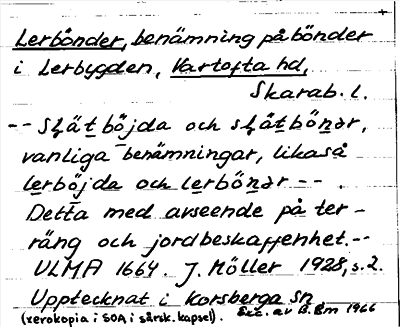 Lerbönder, benämning på bönder
i Lerbygden, Vartofta hd,
Skarab. l.
-- Slätböjda och slåtbönər,
vanliga benämningar, likaså
lerböjda och lerbönər -- .
Detta med avseende på ter-
räng och jordbeskaffenhet. --
ULMA 1664. J. Möller 1928, s. 2.
Upptecknat i Korsberga sn
(xerokopia i SOA i särsk. kapsel). Exc. av B. Bm 1966